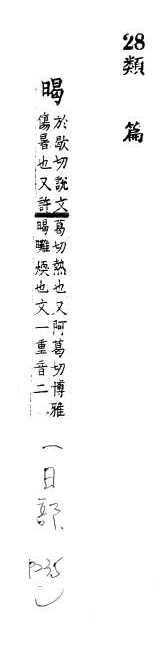 28類篇
暍
於歇切說文
傷暑也又許
葛切熱也又阿葛切博雅
暍曬煗也文一重音二
一日部